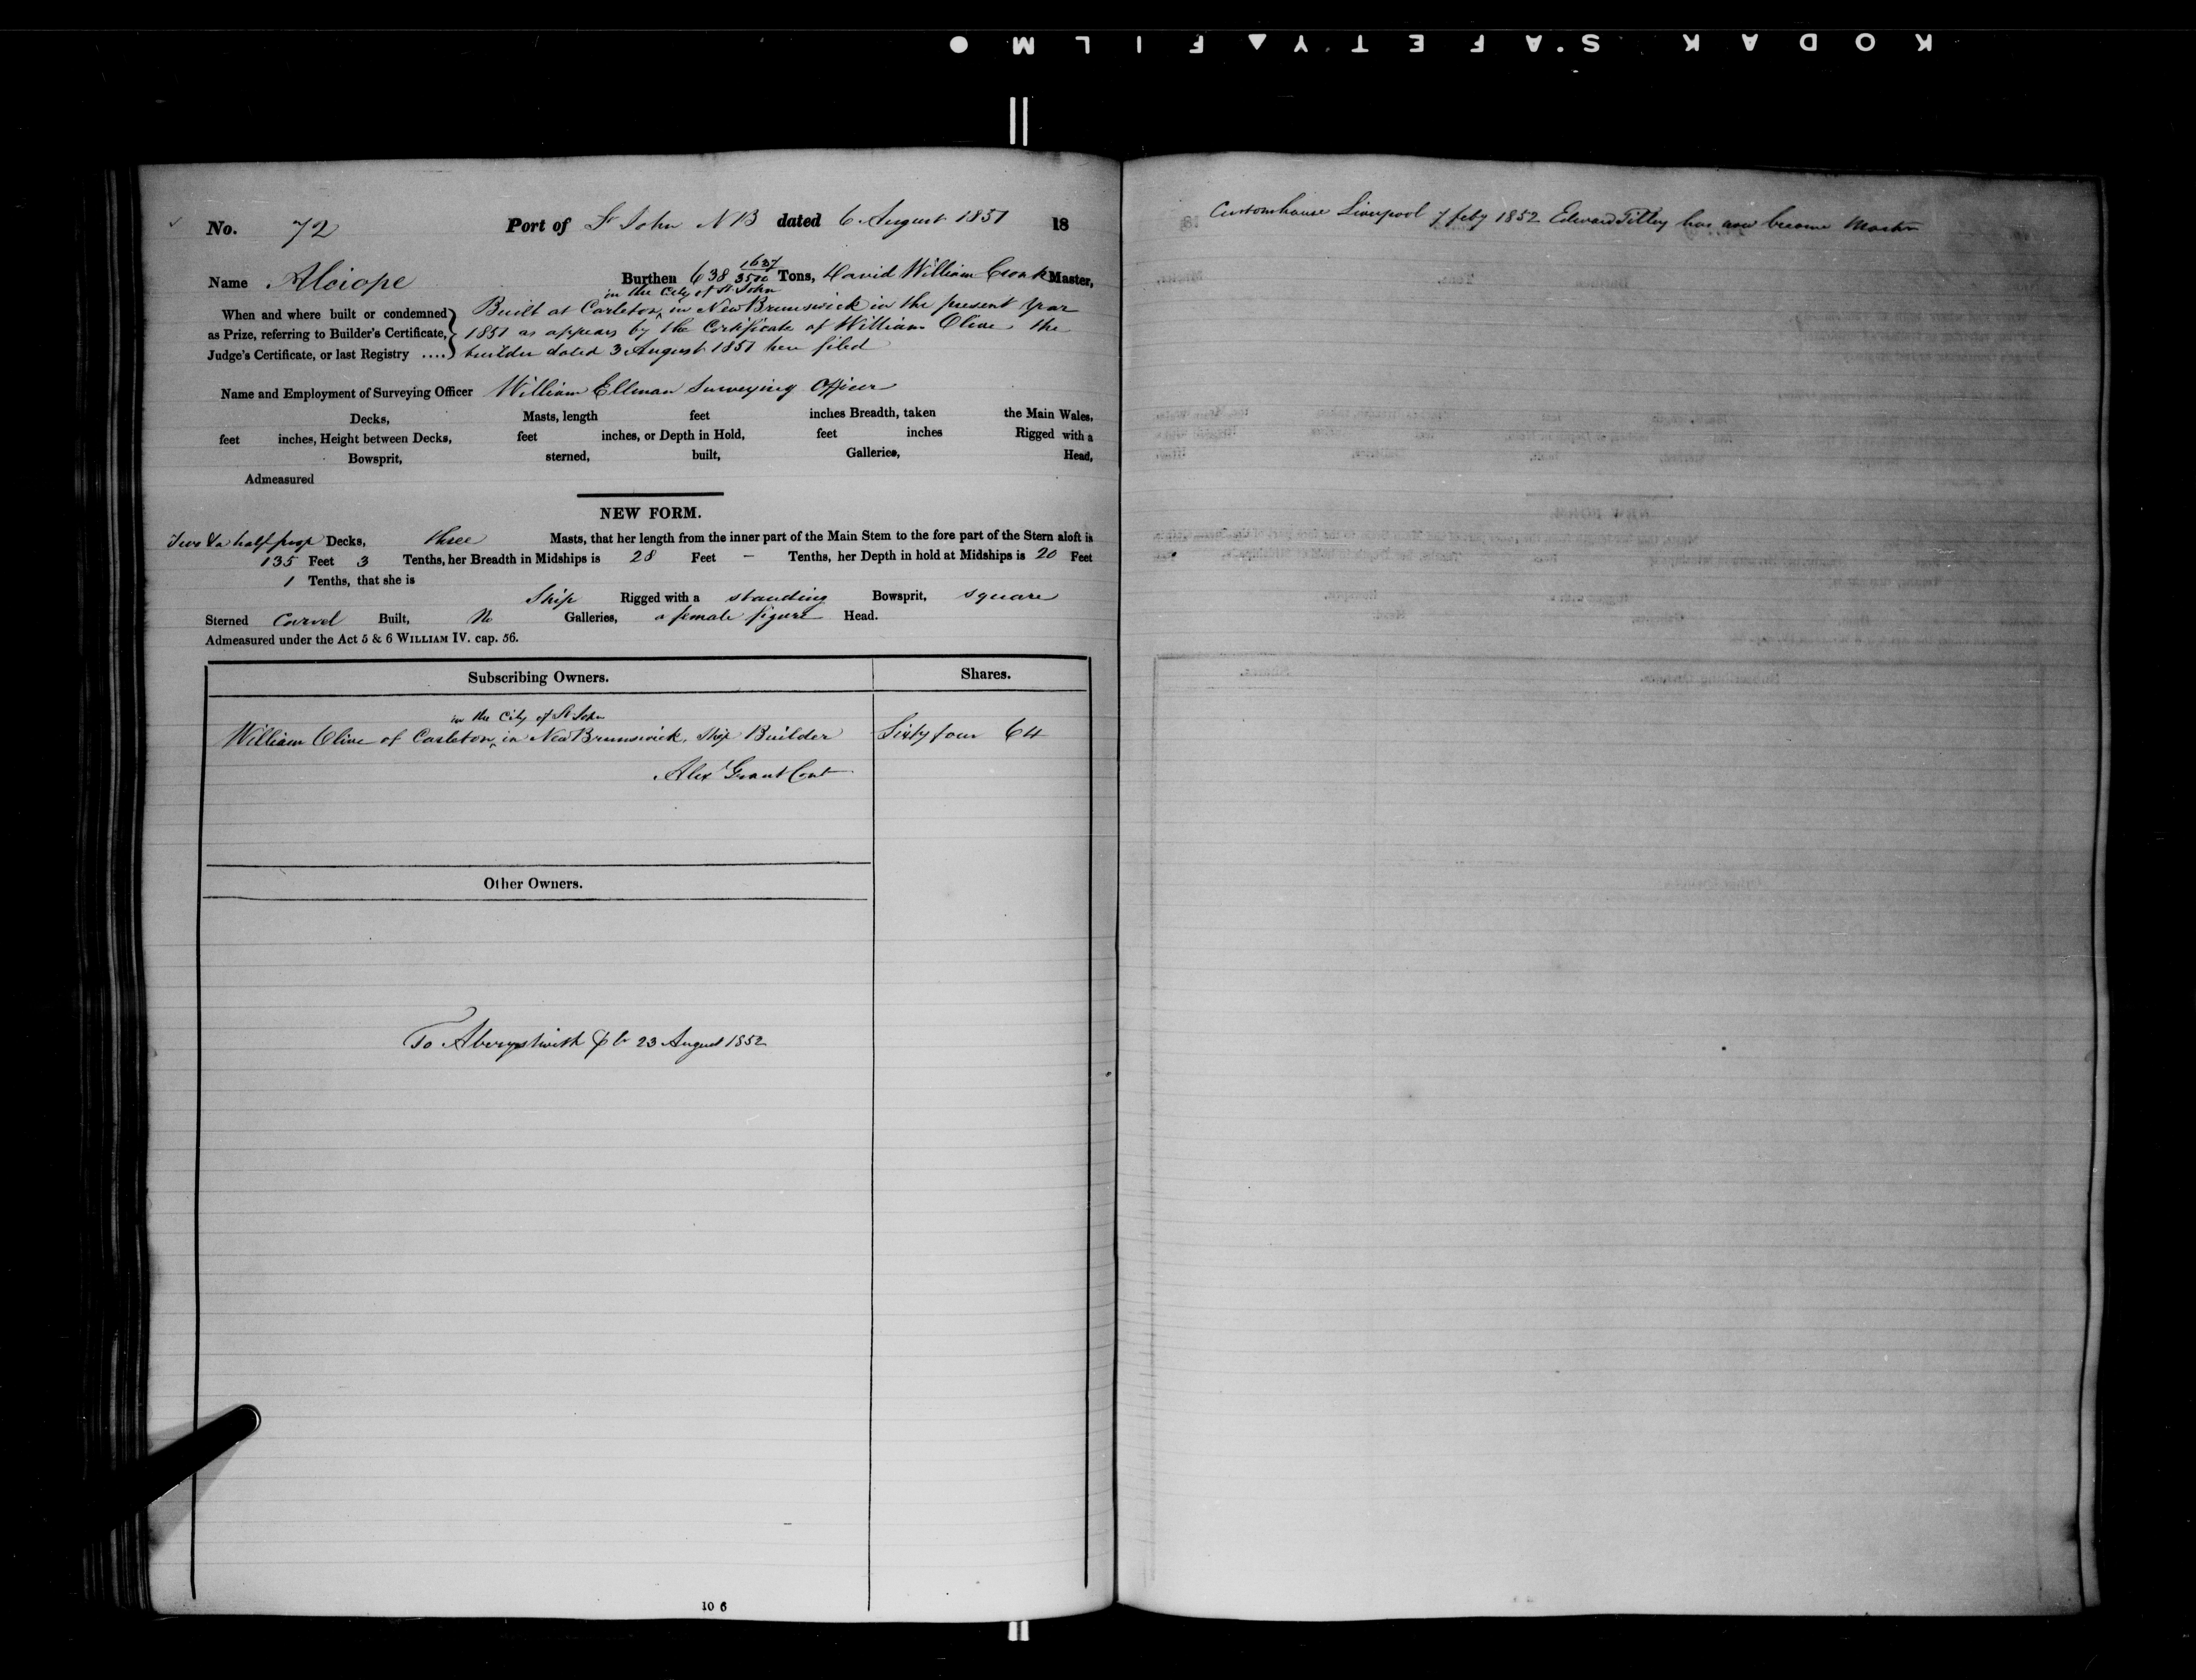 KODAK SAFETY▲FILM ●
No. 72 Port of St John NB dated 6 August 1851 18
Name Alciope Burthen 638 1637/3500 Tons, David William Cronk Master,
in the City of St John
When and where built or condemned Built at Carleton ^ in New Brunswick in the present Year
as Prize, referring to Builder's Certificate, 1851 as appears by the Certificate of William Olive the
Judge's Certificate, or last Registry .... builder dated 3 August 1851 here filed
Name and Employment of Surveying Officer William Ellman Surveying Officer
Decks, Masts, length feet inches Breadth, taken the Main Wales,
feet inches, Height between Decks, feet inches, or Depth in Hold, feet inches Rigged with a
Bowsprit, sterned, built, Galleries, Head,
Admeasured
NEW FORM.
Two & a half poop Decks, three Masts, that her length from the inner part of the Main Stem to the fore part of the Stern aloft is
135 Feet 3 Tenths, her Breadth in Midships is 28 Feet - Tenths, her Depth in hold at Midships is 20 Feet
1 Tenths, that she is
Ship Rigged with a standing Bowsprit, square
Sterned Carvel Built, No Galleries, a female figure Head.
Admeasured under the Act 5 & 6 WILLIAM IV. cap. 56.
Subscribing Owners. Shares.
in the City of St John
William Olive of Carleton ^ in New Brunswick, Ship Builder Sixty four 64
Alex Grant Cont
Other Owners.
To Aberystwith 23 August 1852
10 6
Customhouse Liverpool 7 feby 1852 Edward Tilley has now become Master